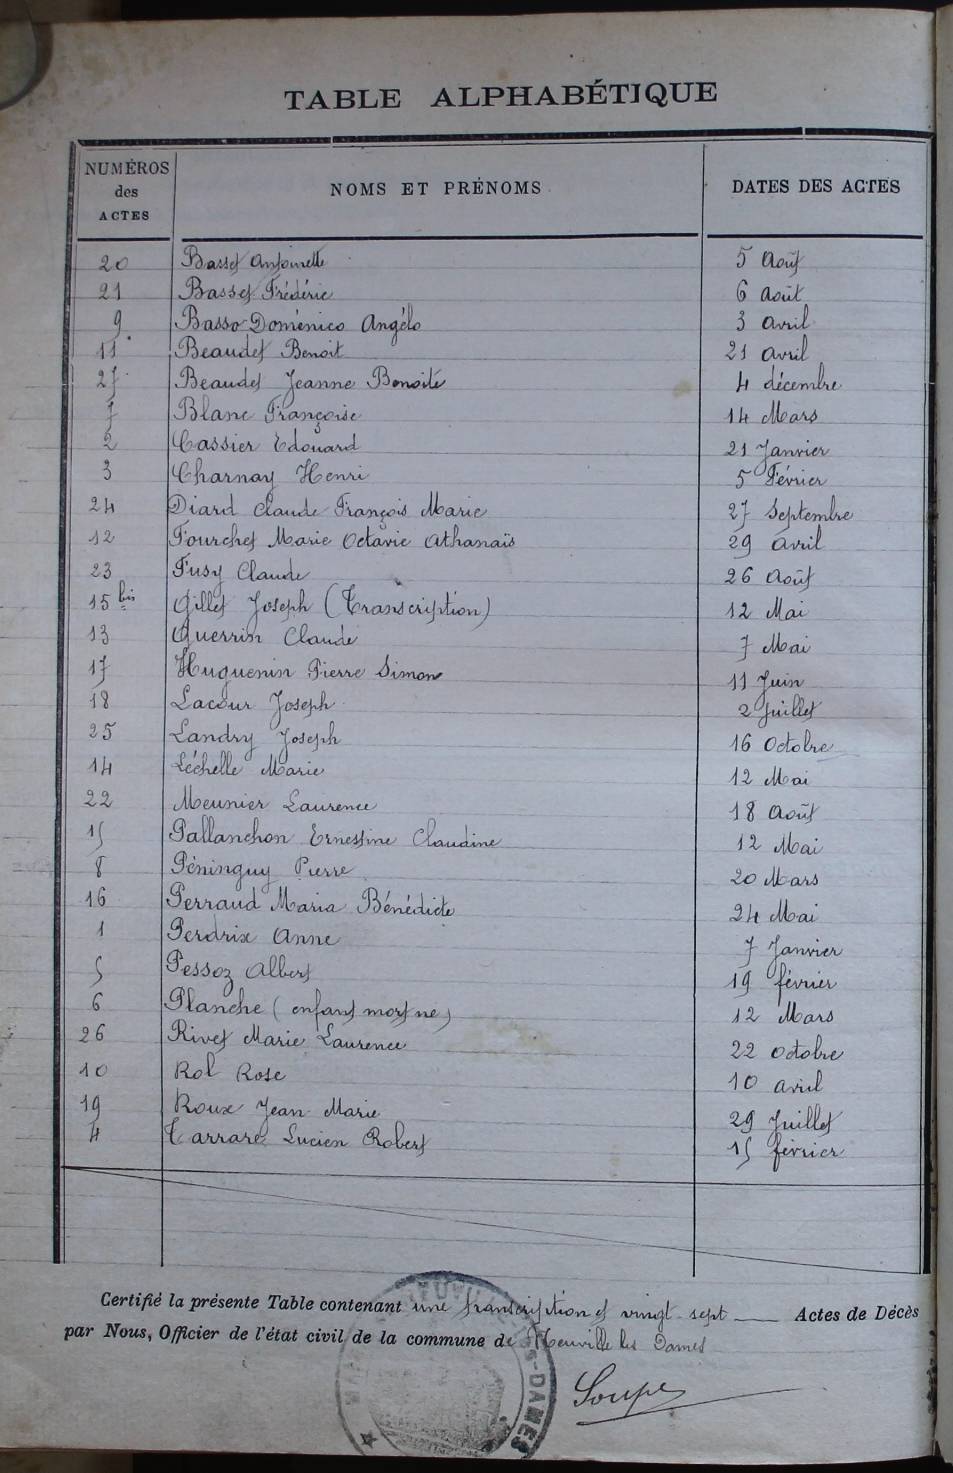 TABLE ALPHABÉTIQUE
NUMÉROS des ACTES NOMS ET PRÉNOMS DATES DES ACTES
20 Basset Antoinette 5 Août
21 Basset Frédéric 6 Août
9 Basso Doménico Angélo 3 avril
11 Beaudet Benoit 21 avril
27 Beaudet Jeanne Benoite 4 décembre
7 Blanc Françoise 14 Mars
2 Cassier Edouard 21 Janvier
3 Charnay Henri 5 Février
24 Diard Claude François Marie 27 Septembre
12 Fourchet Marie Octavie Athanaïs 29 avril
23 Fusy Claude 26 Août
15 bis Gillet Joseph (Transcription) 12 Mai
13 Guerrin Claude 7 Mai
17 Huguenin Pierre Simon 11 Juin
18 Lacour Joseph 2 Juillet
25 Landry Joseph 16 Octobre
14 Léchelle Marie 12 Mai
22 Meunier Laurence 18 Août
15 Pallanchon Ernestine Claudine 12 Mai
8 Péninguy Pierre 20 Mars
16 Perraud Maria Bénédicte 24 Mai
1 Perdrix Anne 7 Janvier
5 Pessoz Albert 19 février
6 Planche (enfant mort né) 12 Mars
26 Rivet Marie Laurence 22 octobre
10 Rol Rose 10 avril
19 Roux Jean Marie 29 Juillet
4 Tarrare Lucien Robert 15 février
Certifié la présente Table contenant une transcription et vingt-sept Actes de Décès
par Nous, Officier de l'état civil de la commune de Neuville les Dames
DAMES
Soupe